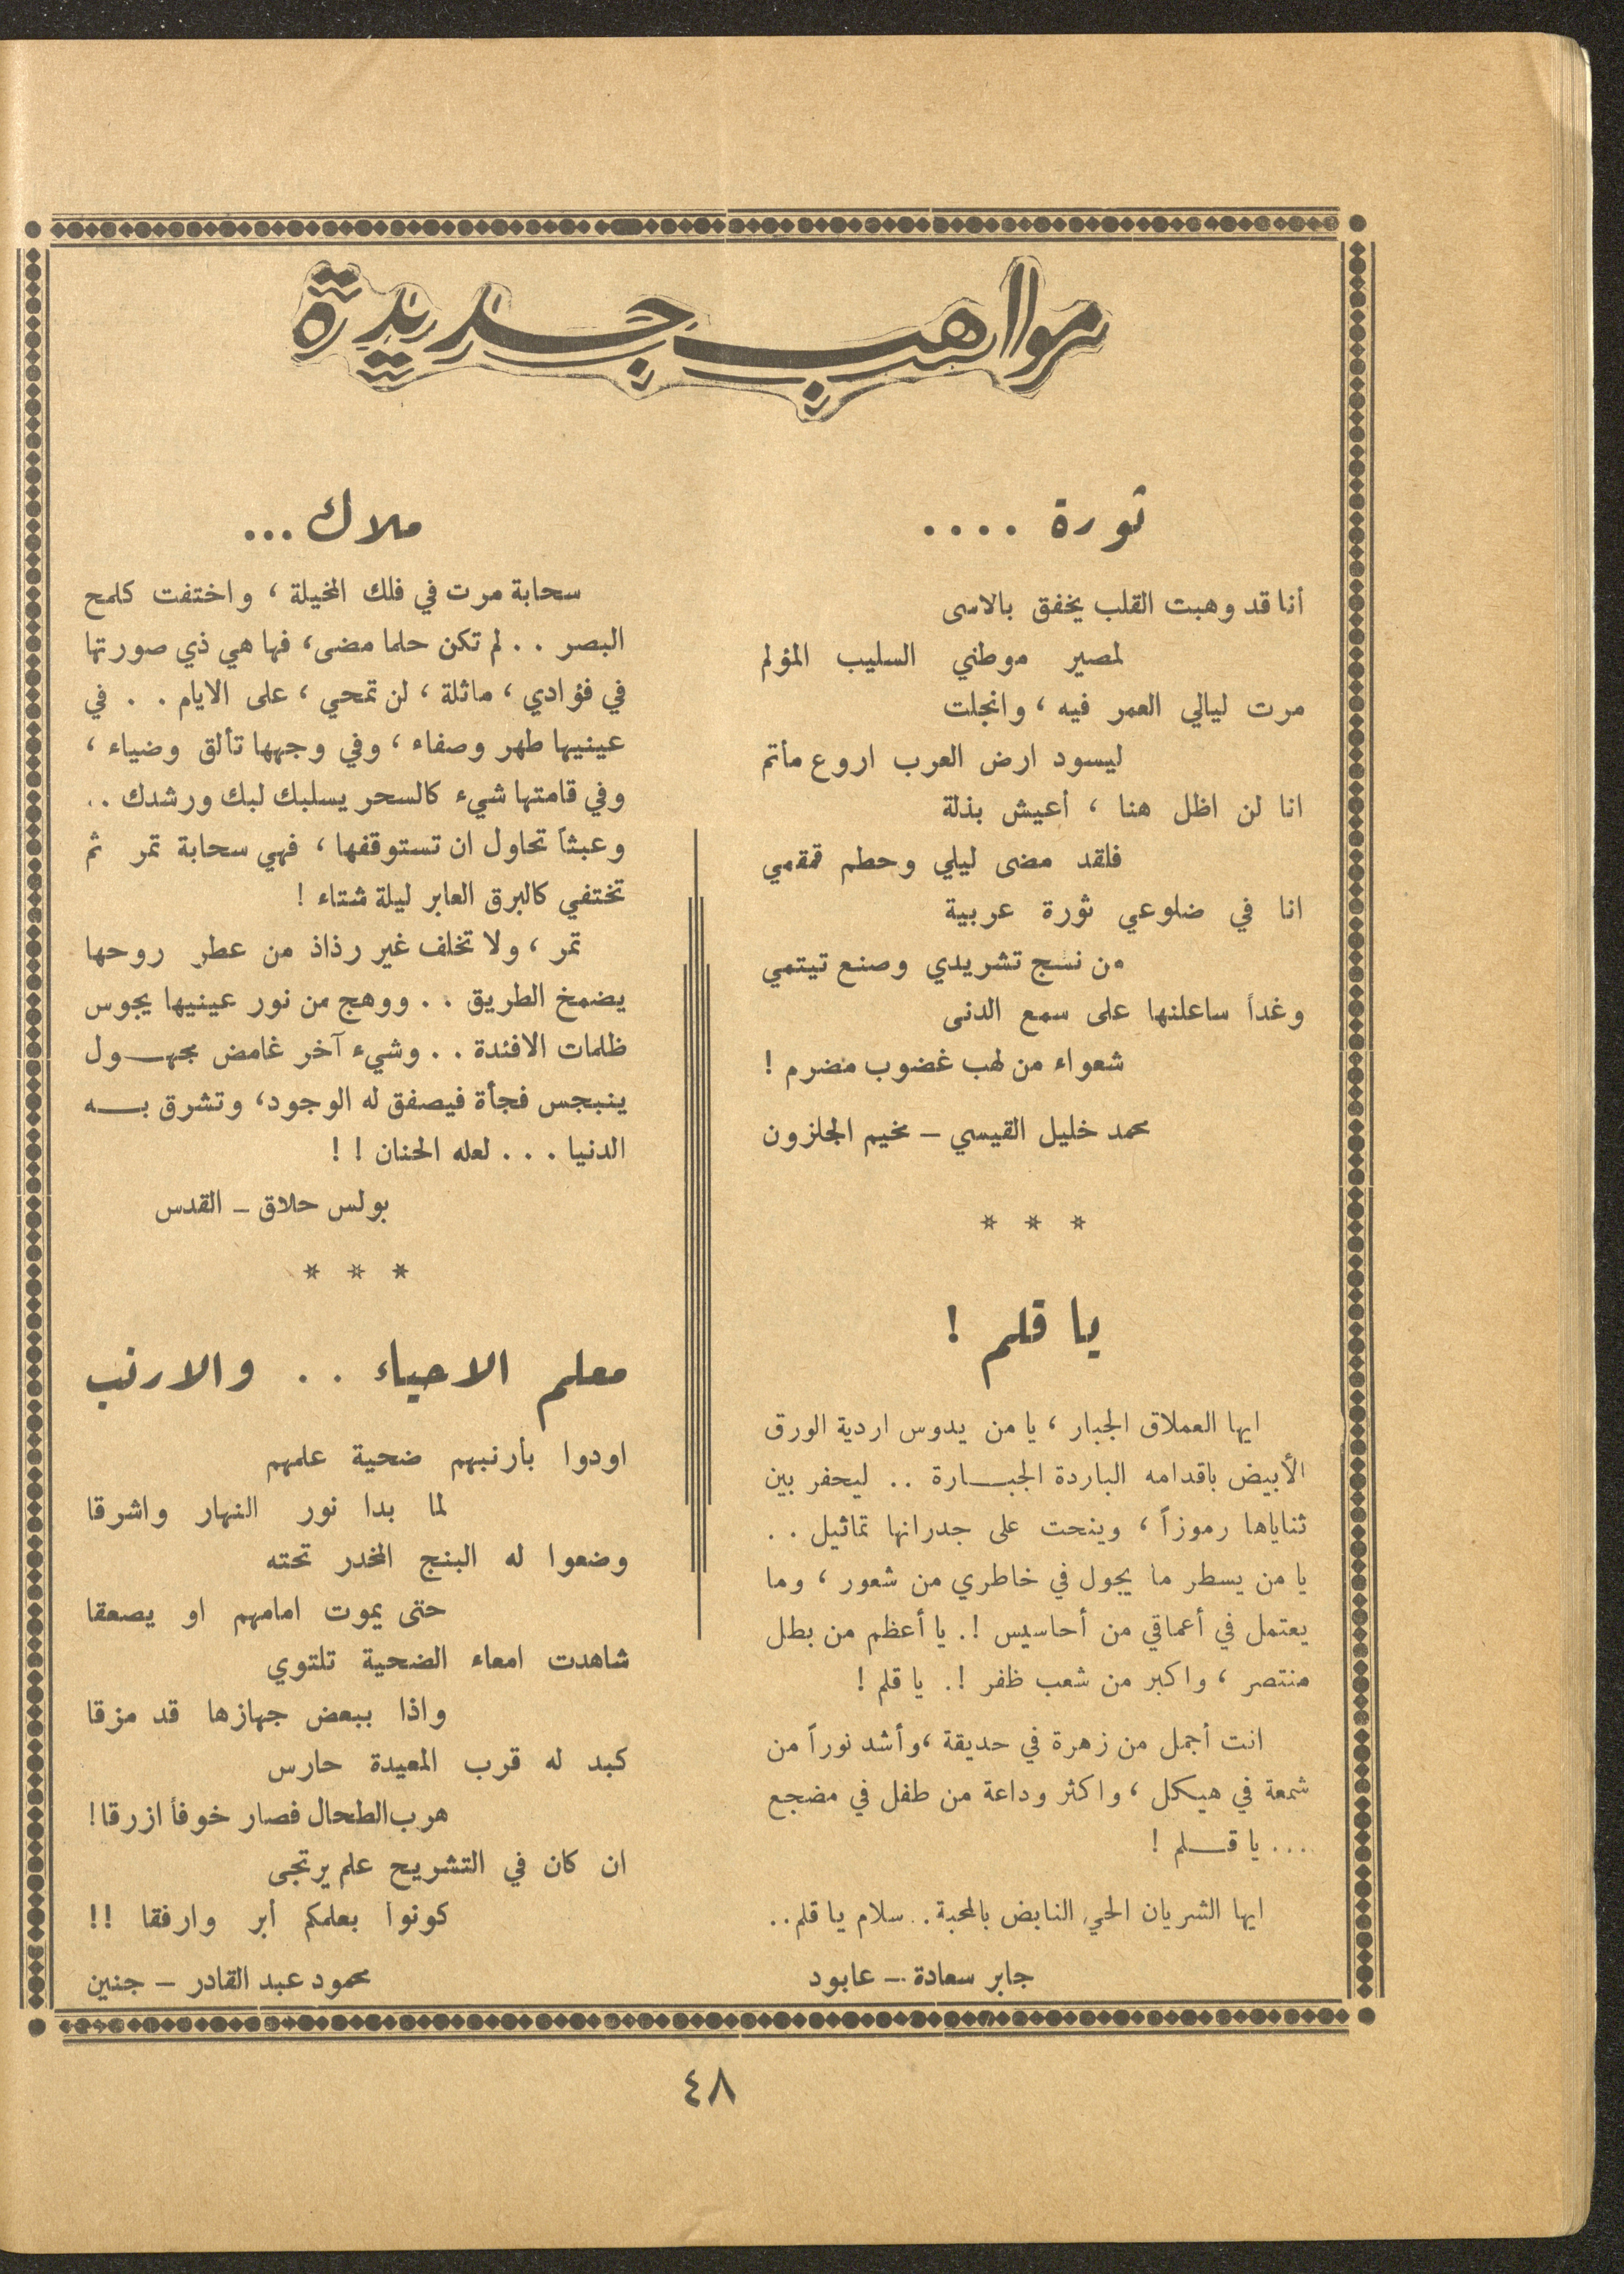 مواهب جديدة
ثورة ....
أنا قد وهبت القلب يخفق بالاسى
لمصير موطني السليب المؤلم
مرت ليالي العمر فيه ، وانجلت
ليسود ارض العرب اروع مأتم
انا لن اظل هنا ، أعيش بذلة
فلقد مضى ليلي وحطم قمقمي
انا في ضلوعي ثورة عربية
من نسج تشريدي وصنع تيتمي
وغداً ساعلنها على سمع الدنى
شعواء من لهب غضوب مضرم !
محمد خليل القيسي – مخيم الجلزون
* * *
يا قلم !
ايها العملاق الجبار ، يا من يدوس اردية الورق
الأبيض باقدامه الباردة الجبـــارة .. ليحفر بين
ثناياها رموزاً ، وينحت على جدرانها تماثيل ..
يا من يسطر ما يجول في خاطري من شعور ، وما
يعتمل في أعماقي من أحاسيس !. يا أعظم من بطل
منتصر ، واكبر من شعب ظفر !. يا قلم !
انت أجمل من زهرة في حديقة ،وأشد نوراً من
شمعة في هيكل ، واكثر وداعة من طفل في مضجع
... يا قـــلم !
ايها الشريان الحي النابض بالمحبة.. سلام يا قلم..
جابر سعادة – عابود
ملاك...
سحابة مرت في فلك المخيلة ، واختفت كلمح
البصر .. لم تكن حلما مضى، فها هي ذي صورتها
في فؤادي ، ماثلة ، لن تمحي ، على الايام .. في
عينيها طهر وصفاء ، وفي وجهها تألق وضياء ،
وفي قامتها شيء كالسحر يسلبك لبك ورشدك ..
وعبثاً تحاول ان تستوقفها ، فهي سحابة تمر ثم
تختفي كالبرق العابر ليلة شتاء !
تمر ، ولا تخلف غير رذاذ من عطر روحها
يضمخ الطريق .. ووهج من نور عينيها يجوس
ظلمات الافئدة .. وشيء آخر غامض مجهـــول
ينبجس فجأة فيصفق له الوجود، وتشرق بـــه
الدنيا ... لعله الحنان ! !
بولس حلاق – القدس
* * *
معلم الاحياء .. والارنب
اودوا بأرنبهم ضحية علمهم
لما بدا نور النهار واشرقا
وضعوا له البنج المخدر تحته
حتى يموت امامهم او يصعقا
شاهدت امعاء الضحية تلتوي
واذا ببعض جهازها قد مزقا
كبد له قرب المعيدة حارس
هرب الطحال فصار خوفاً ازرقا!
ان كان في التشريح علم يرتجى
كونوا بعلمكم أبر وارفقا !!
محمود عبد القادر – جنين
٤٨